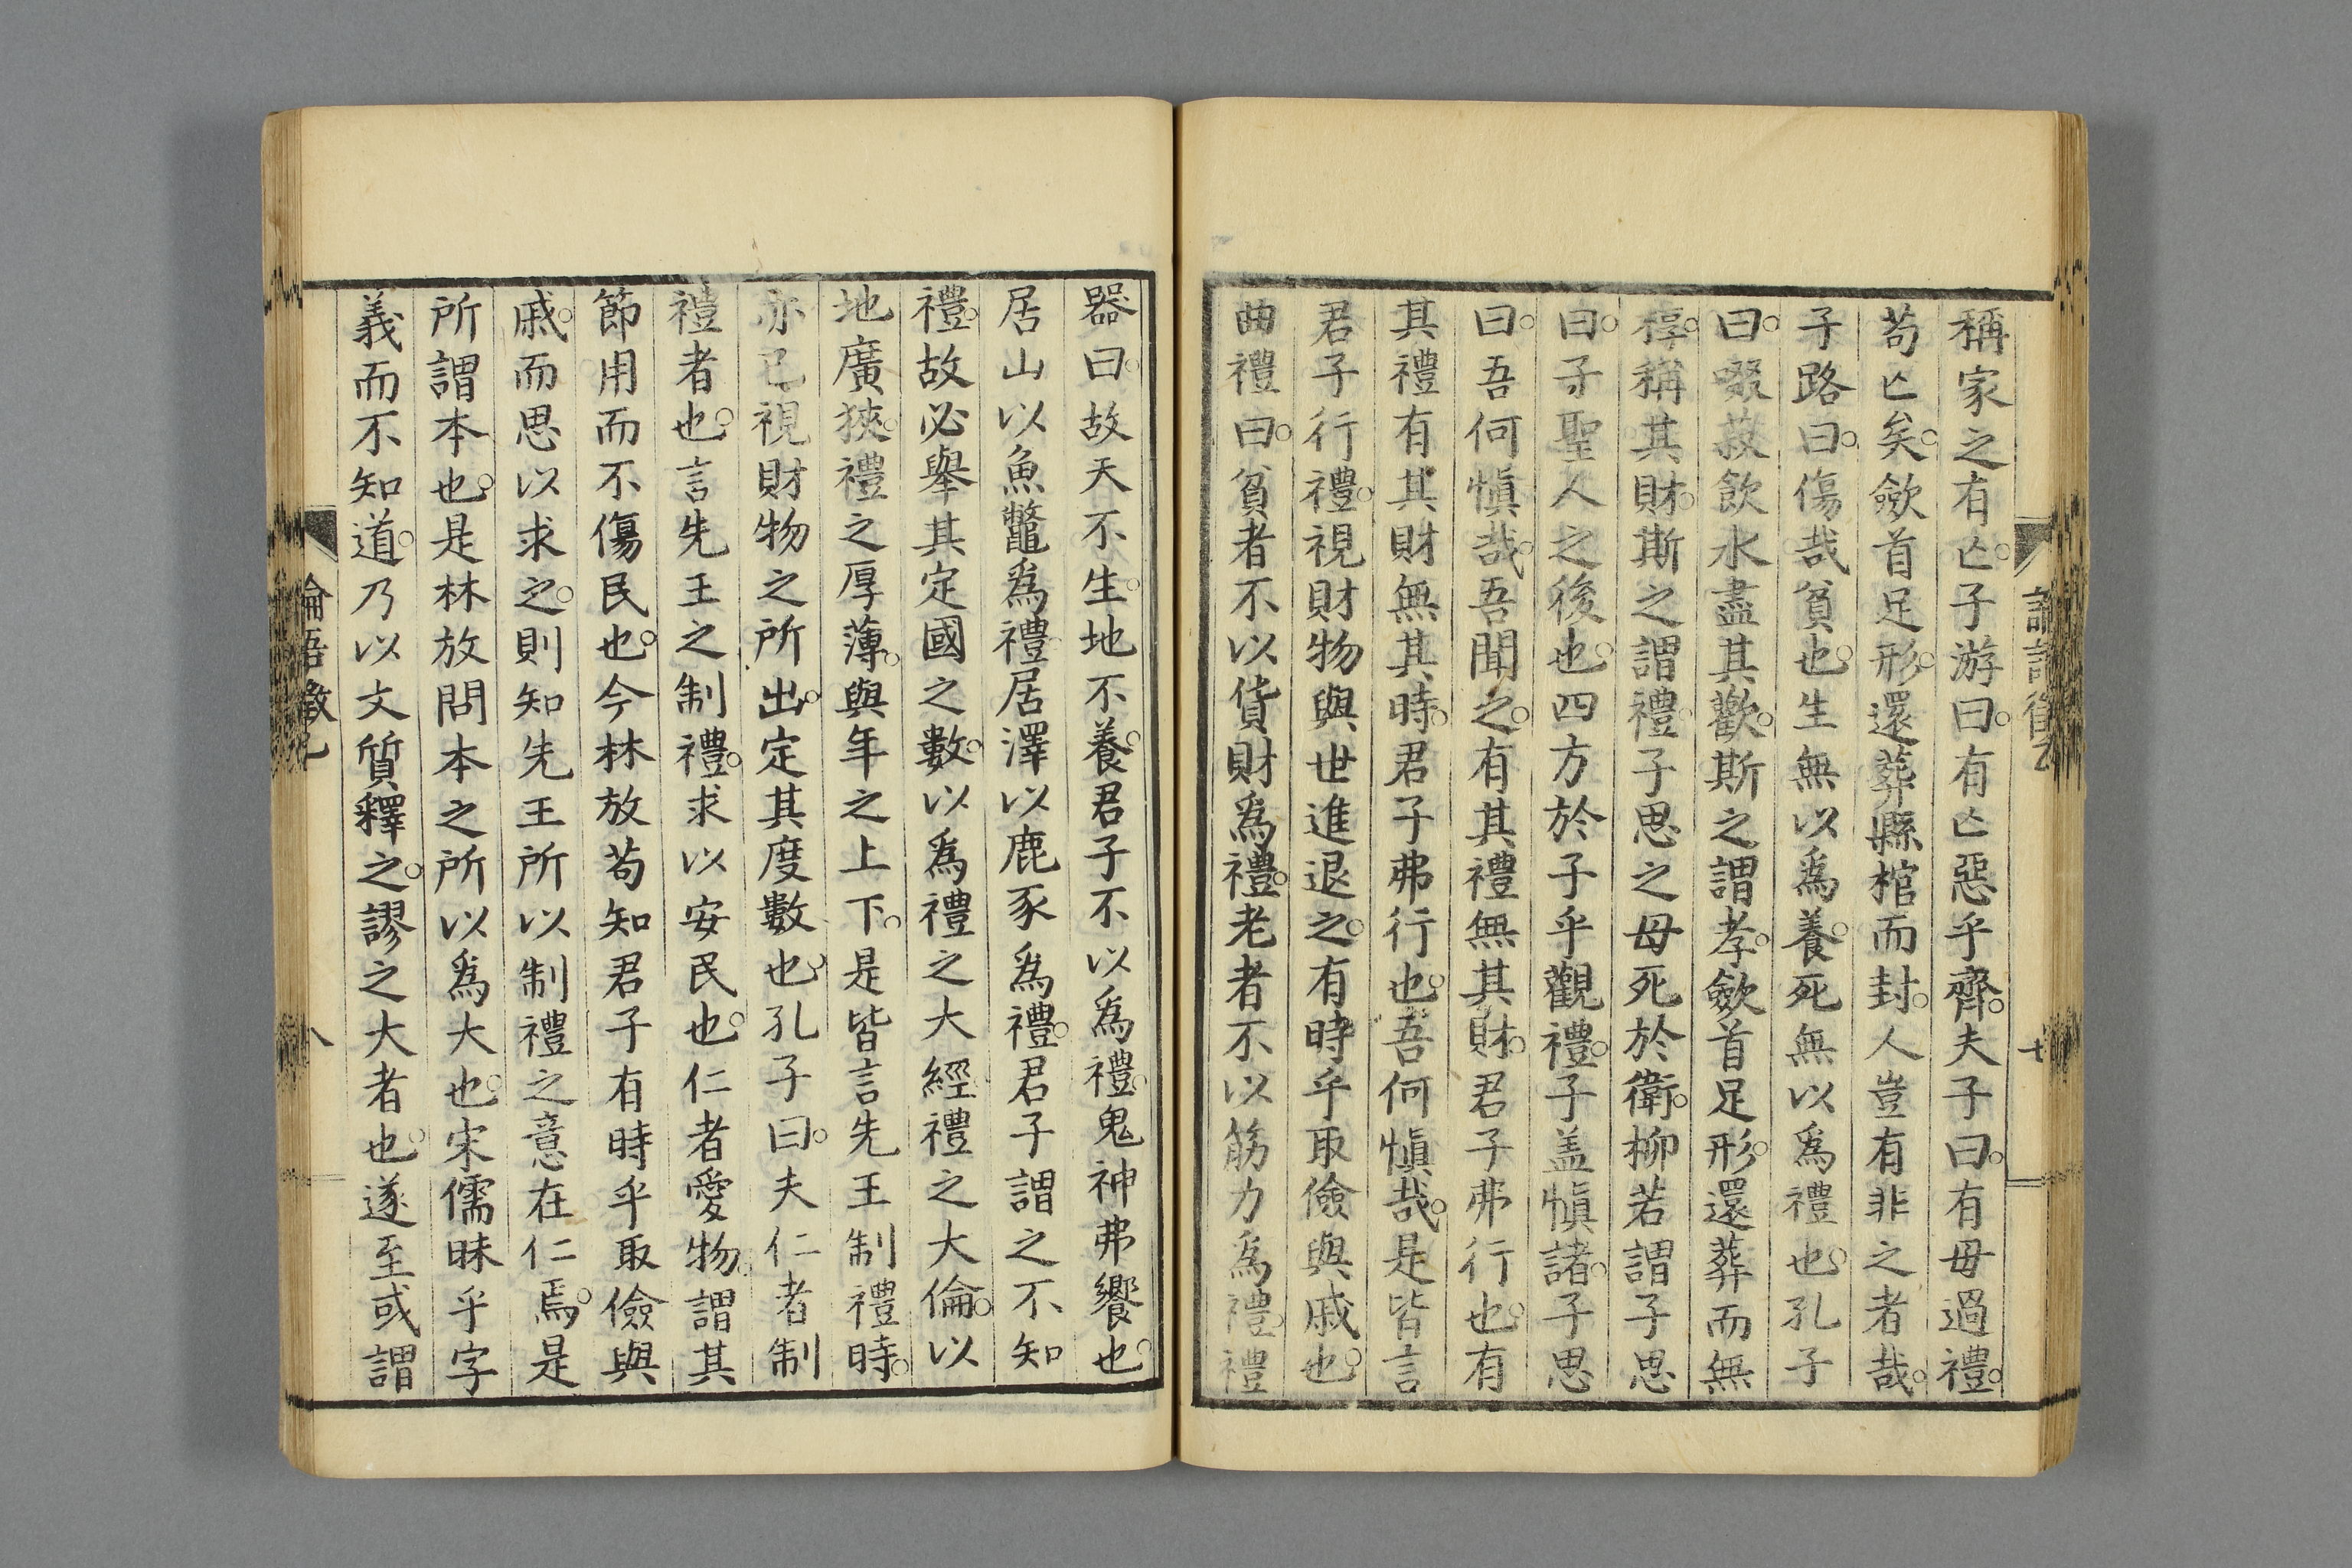 稱家之有亡。子游曰。有亡惡乎齊。夫子曰。有毋過禮。
苟亡矣。斂首足形。還葬縣棺而封。人豈有非之者哉。
子路曰。傷哉貧也。生無以爲養。死無以爲禮也。孔子
曰。啜菽飲水盡其歡。斯之謂孝。斂首足形。還葬而無
椁。稱其財。斯之謂禮。子思之母死於衛。柳若謂子思
曰。子聖人之後也。四方於子乎觀禮。子盖愼諸。子思
曰。吾何愼哉。吾聞之。有其禮無其財。君子弗行也。有
其禮有其財無其時。君子弗行也。吾何愼哉。是皆言
君子行禮。視財物與世進退之。有時乎取儉與戚也。
曲禮曰。貧者不以貨財爲禮。老者不以筋力爲禮。禮
器曰。故天不生。地不養。君子不以爲禮。鬼神弗饗也。
居山以魚鼈爲禮。居澤以鹿豕爲禮。君子謂之不知
禮。故必舉其定國之數。以爲禮之大經。禮之大倫。以
地廣狹。禮之厚薄。與年之上下。是皆言先王制禮時。
亦已視財物之所出。定其度數也。孔子曰。夫仁者制
禮者也。言先王之制禮。求以安民也。仁者愛物。謂其
節用而不傷民也。今林放苟知君子有時乎取儉與
戚。而思以求之。則知先王所以制禮之意在仁焉。是
所謂本也。是林放問本之所以爲大也。宋儒昧乎字
義而不知道。乃以文質釋之。謬之大者也。遂至或謂
論語徵乙
八